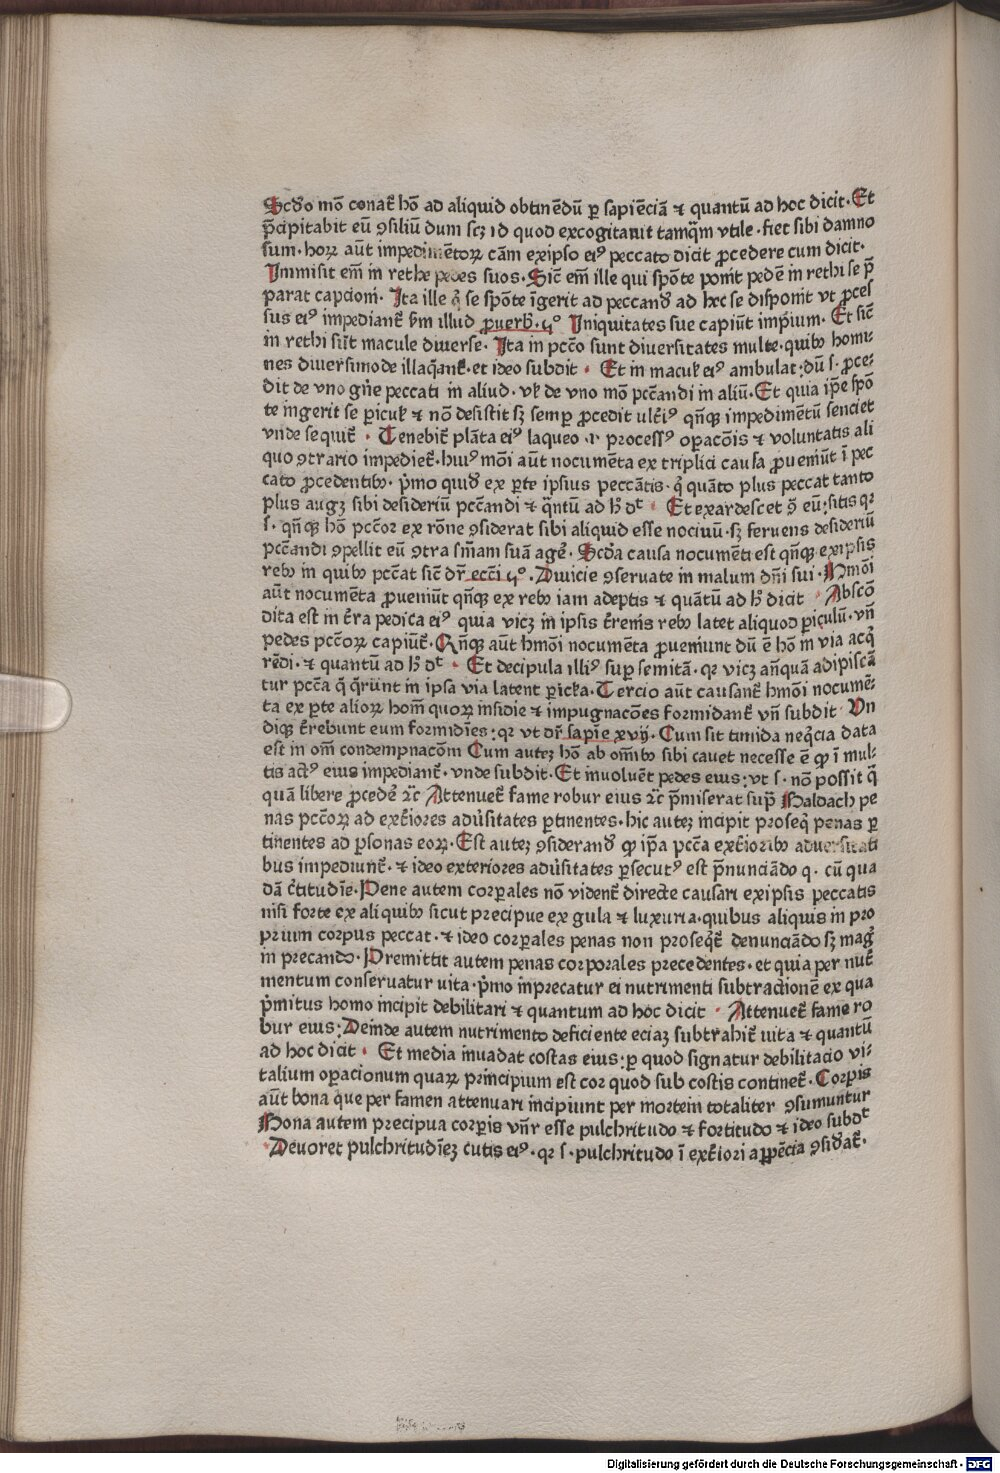 Scdo mō conat̄ hō ad aliquid obtinēdū ꝑ sapiēciā ⁊ quantū ad hoc dicit· Et
p̄cipitabit eū ꝯsiliū dum scꝫ id quod excogitauit tamq̄m vtile· fiet sibi damno
sum· horꝝ aūt impedimētorꝝ cām exipso eiꝰ peccato dicit ꝓcedere cum dicit·
Inmisit em̄ in rethe pedes suos· Sic̄ em̄ ille qui spōte ponit pedē in rethi se p̄
parat capcioni· Ita ille q̇ se spōte īgerit ad peccand̄ ad hec se disponit vt ꝓces
sus eiꝰ impediant̄ ẜm illud ꝓuerb̄· ꝟº Iniquitates sue capiūt impium· Et sic̄
in rethi sūt macule diuerse· Ita in pccō sunt diuersitates multe· quibꝰ homi⸗
nes diuersimode illaq̄ant̄· et ideo subdit · Et in macul̄ eiꝰ ambulat: dū s· ꝓce⸗
dit de vno gn̄e peccati in aliud· vl̄ de vno mō pcc̄andi in aliū· Et quia ip̄e spō
te ingerit se ꝑicul̄ ⁊ nō desistit sꝫ semꝑ ꝓcedit ult̄iꝰ qn̄qꝫ impedimētū senciet
vnde sequit̄ · Tenebit̄ plāta eiꝰ laqueo ·i· processꝰ oꝑacōis ⁊ voluntatis ali
quo ꝯtrario impediet̄· huiꝰ mōi aūt nocumēta ex triplici causa ꝓueniūt ī pec
cato ꝓcedentibꝰ· p̄mo quid̄ ex ꝑte ipsius peccātis· q̇ quāto plus peccat tanto
plus augꝫ sibi desideriū pcc̄andi ⁊ q̄ntū ad h̄ dt · Et exardescet ꝯ̄ eū: sitis qꝛ
s· qn̄qꝫ hō pcc̄or ex rōne ꝯsiderat sibi aliquid esse nociuū· sꝫ feruens desideriū
pcc̄andi ꝯpellit eū ꝯtra sn̄iam suā agē· Scd̄a causa nocumēti est qn̄qꝫ exipsis
rebꝰ in quibꝰ pcc̄at sic̄ dr̄ ecc̄i ꝟº· Diuicie ꝯseruate in malum dn̄i sui· Hmōi
aūt nocumēta ꝓueniūt qn̄qꝫ ex rebꝰ iam adeptis ⁊ quātū ad h̄ dicit · Abscō
dita est in t̄ra pedica eiꝰ quia vicꝫ in ipsis t̄renis rebꝰ latet aliquod ꝑiculū· vn̄
pedes pcc̄orꝝ capiūt̄· Qn̄qꝫ aūt hmōi nocumēta ꝓueniunt dū ē hō in via acq̇
rēdi· ⁊ quantū ad h̄ dt · Et decipula illiꝰ suꝑ semitā· qꝛ vicꝫ an̄quā adipiscā
tur pcc̄a q̄ q̄runt in ipsa via latent ꝑicl̄a· Tercio aūt causant̄ hmōi nocumē⸗
ta ex ꝑte aliorꝝ hom̄ quorꝝ insidie ⁊ impugnacōes formidant̄ vn̄ subdit Vn
diqꝫ t̄rebunt eum formidīes: qꝛ vt dr̄ sapīe xvij· Cum sit timida neq̄cia data
est in om̄ condempnacōm Cum auteꝫ hō ab om̄ibꝰ sibi cauet necesse ē ꝙ ī mul⸗
tis actꝰ eius impediant̄· vnde subdit· Et inuoluēt pedes eius: vt s· nō possit q̄
quā libere ꝓcedē ⁊c̄ Attenuet̄ fame robur eius ⁊c̄ p̄miserat sup̄ Baldach pe
nas pcc̄orꝝ ad ext̄iores adūsitates ꝑtinentes· hic auteꝫ incipit proseq̇ penas ꝑ
tinentes ad ꝑsonas eorꝝ· Est auteꝫ ꝯsiderand̄ ꝙ ip̄a pcc̄a ext̄ioribꝰ aduersitati
bus impediunt̄· ⁊ ideo exteriores adūsitates ꝑsecutꝰ est p̄nunciādo q· cū qua
dā c̄titudīe· Pene autem corꝑales nō vident̄ directe causari exipsis peccatis
nisi forte ex aliquibꝰ sicut precipue ex gula ⁊ luxuria· quibus aliquis in pro
prium corpus peccat· ⁊ ideo corꝑales penas non proseq̇t̄ denunciādo sꝫ maḡ̣
in precando· Premittit autem penas corporales precedentes· et quia per nut̄
mentum conseruatur uita· p̄mo inprecatur ei nutrimenti subtractionē ex qua
p̄mitus homo incipit debilitari ⁊ quantum ad hoc dicit · Attenuet̄ fame ro
bur eius: Deinde autem nutrimento deficiente eciaꝫ subtrahit̄ uita ⁊ quantū
ad hoc dicit · Et media inuadat costas eius: ꝑ quod signatur debilitacio vi⸗
talium oꝑacionum quarꝝ principium est cor quod sub costis continet̄· Corꝑis
aūt bona que per famen attenuari incipiunt per mortem totaliter ꝯsumuntur
Bona autem precipua corꝑis vn̄r esse pulchritudo ⁊ fortitudo ⁊ ideo subdt
·Deuoret pulchritudīeꝫ cutis eiꝰ· qꝛ s· pulchritudo ī ext̄iori apꝑēcia ꝯsid̄at̄·
Digitalisierung gefördert durch die Deutsche Forschungsgemeinschaft - DFG